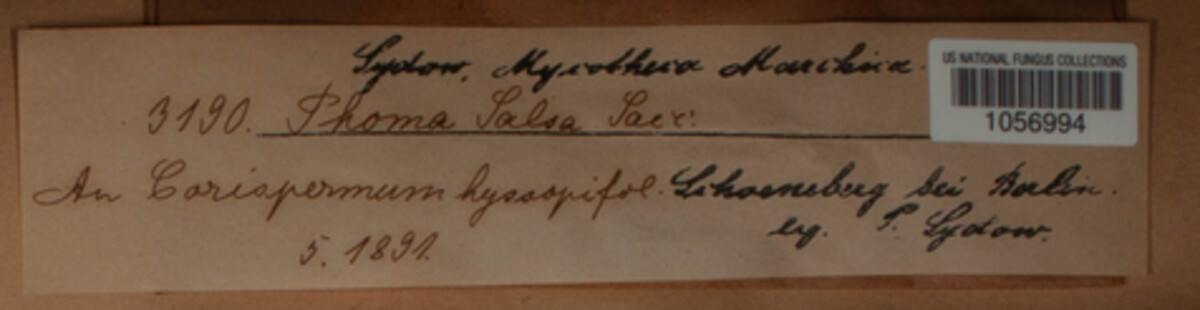 Sydow, Mycotheca Marchica.
US NATIONAL FUNGUS COLLECTIONS
1056994
3190. Phoma Salsa Sacc.
An Corispermum hyssopifol. Schoeneberg bei Berlin.
5. 1891. leg. P. Sydow.